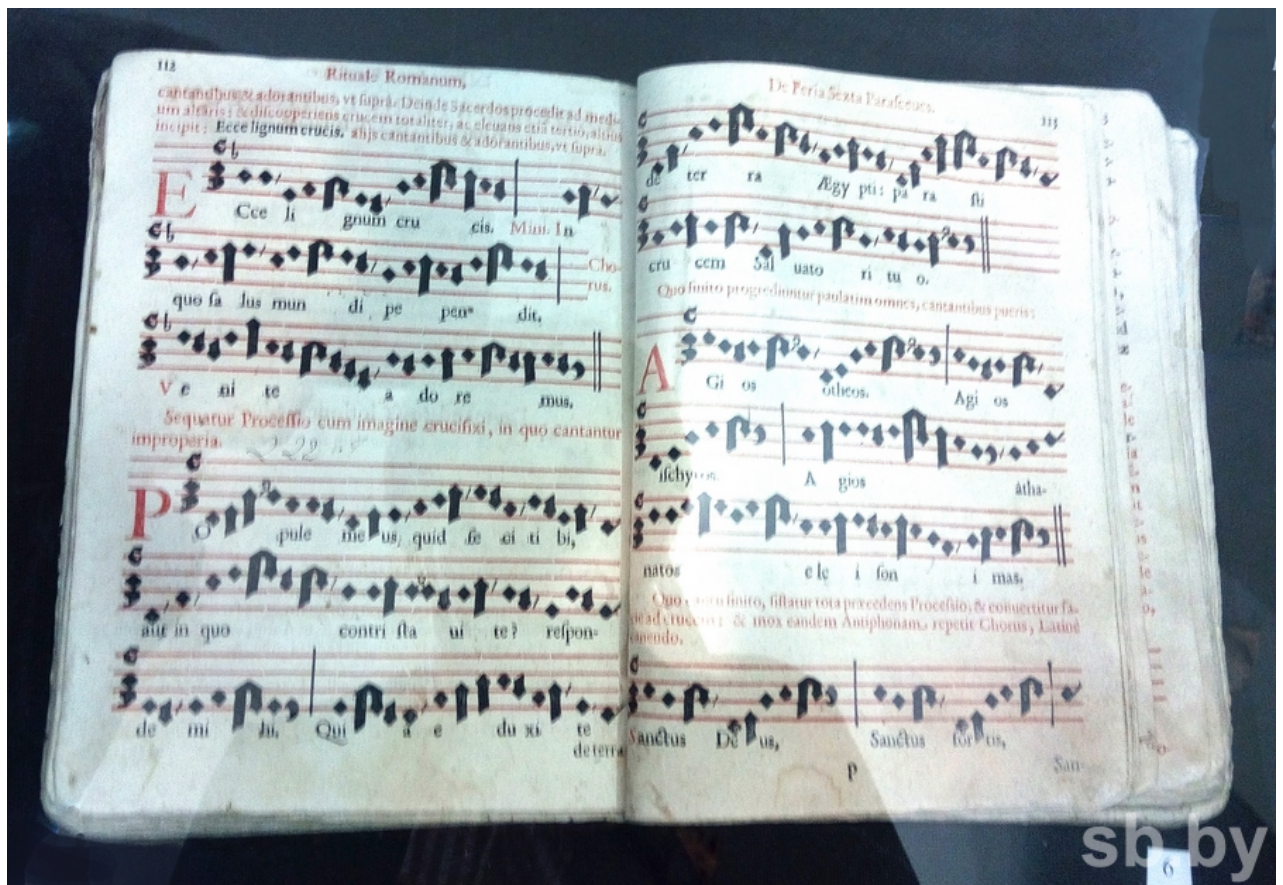 112
Rituale Romanum,
cantantibus & adorantibus, vt suprà. Deinde Sacerdos procedit ad medi-
um altaris; & discooperiens crucem totaliter, ac eleuans etiã tertio, altius
incipit: Ecce lignum crucis. alijs cantantibus & adorantibus, vt suprà.
E Cce li gnum cru cis. Mini. In
quo sa lus mun di pe pen- dit. Cho-
rus.
V e ni te a do re mus.
Sequatur Processio cum imagine crucifixi, in quo cantantur
improperia.
222
P O pule me us, quid fe ci ti bi,
aut in quo contri sta ui te? respon-
de mi hi. Qui a e du xi te
de terra
De Feria Sexta Parasceues.
113
de ter ra Ægy pti: pa ra sti
cru cem Sal uato ri tu o.
Quo finito progrediuntur paulatim omnes, cantantibus pueris:
A Gi os otheos. Agi os
ischyros. A gios átha-
natos e le i son i mas.
Quo finito, sistatur tota præcedens Processio, & conuertitur fa-
cie ad crucem: & mox eandem Antiphonam repetit Chorus, Latinè
canendo.
Sanctus De us, Sanctus for tis,
P
San-
sb.by
6